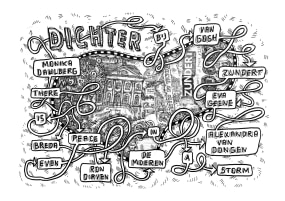 DICHTER
BIJ
VAN
GOGH
MONIKA
DAHLBERG
ZUNDERT
ZUNDERT
THERE
EVA
GEENE
IS
PEACE
IN
ALEXANDRA
VAN
DONGEN
BREDA
EVEN
RON
DIRVEN
DE
MOEREN
A
STORM